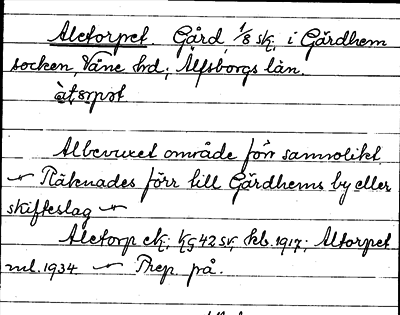 Aletorpet. Gård, 1/8 sk, i Gärdhem
socken, Väne hd, Älfsborgs län.
àt,ərpət
Albevuxet område förr samnolikt
– Räknades förr till Gärdhems by eller
skifteslag –
Aletorp ek; KG 42 SV, hb. 1917; Altorpet
ml. 1934 – Prep. på.